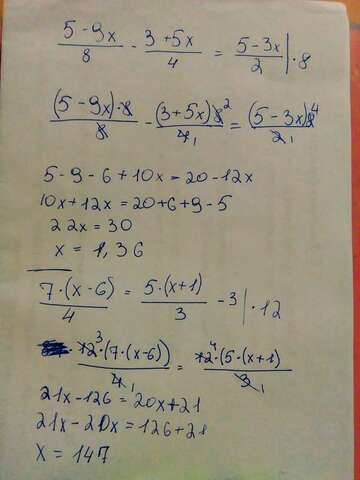 (5 - 9x)/8 - (3 + 5x)/4 = (5 - 3x)/2 | · 8
((5 - 9x) · 8)/8 - ((3 + 5x) 8 2)/(4 1) = ((5 - 3x) 8 4)/(2 1)
5 - 9 - 6 + 10x = 20 - 12x
10x + 12x = 20 + 6 + 9 - 5
22x = 30
x = 1,36
(7 · (x - 6))/4 = (5 · (x + 1))/3 - 3 | · 12
(12 3 · (7 · (x - 6)))/(4 1) = (12 4 · (5 · (x + 1)))/(3 1)
21x - 126 = 20x + 21
21x - 20x = 126 + 21
x = 147